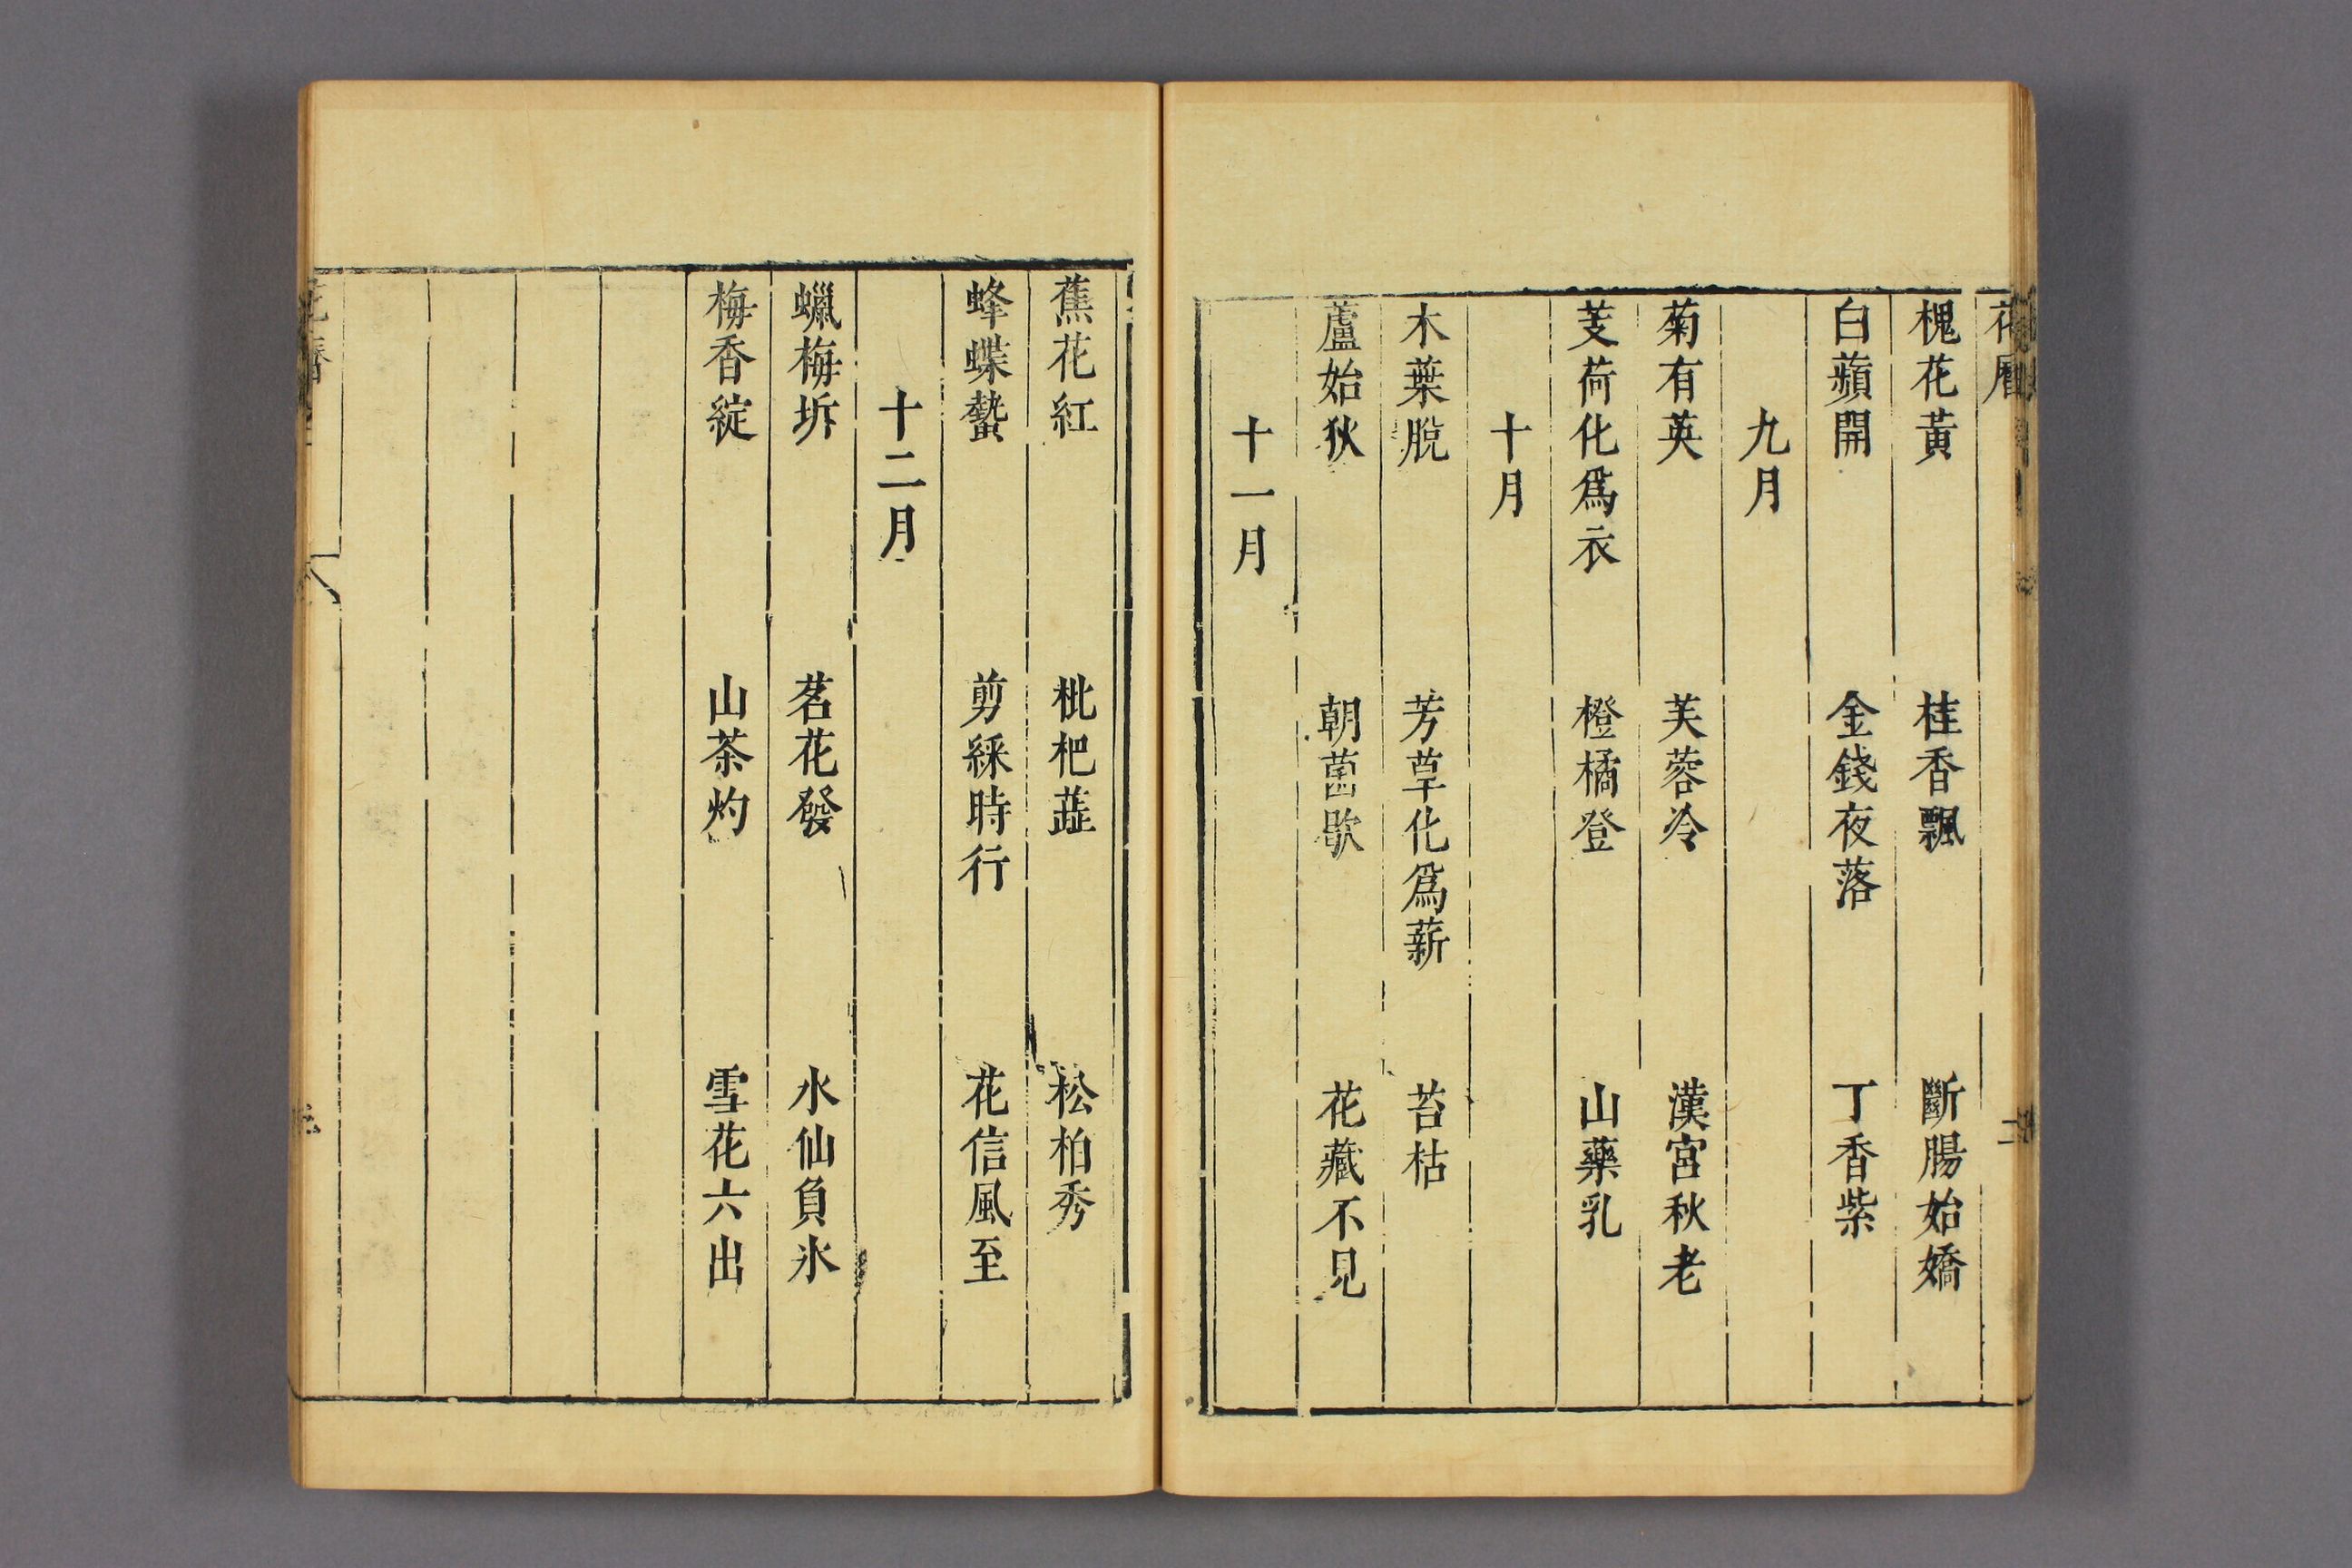 花曆
二
槐花黃 桂香飄 斷腸始嬌
白蘋開 金錢夜落 丁香紫
九月
菊有英 芙蓉冷 漢宮秋老
芰荷化爲衣 橙橘登 山藥乳
十月
木葉脫 芳草化爲薪 苔枯
蘆始狄 朝菌歇 花藏不見
十一月
蕉花紅 枇杷蕋 松柏秀
蜂蝶蟄 剪綵時行 花信風至
十二月
蠟梅坼 茗花發 水仙負氷
梅香綻 山茶灼 雪花六出